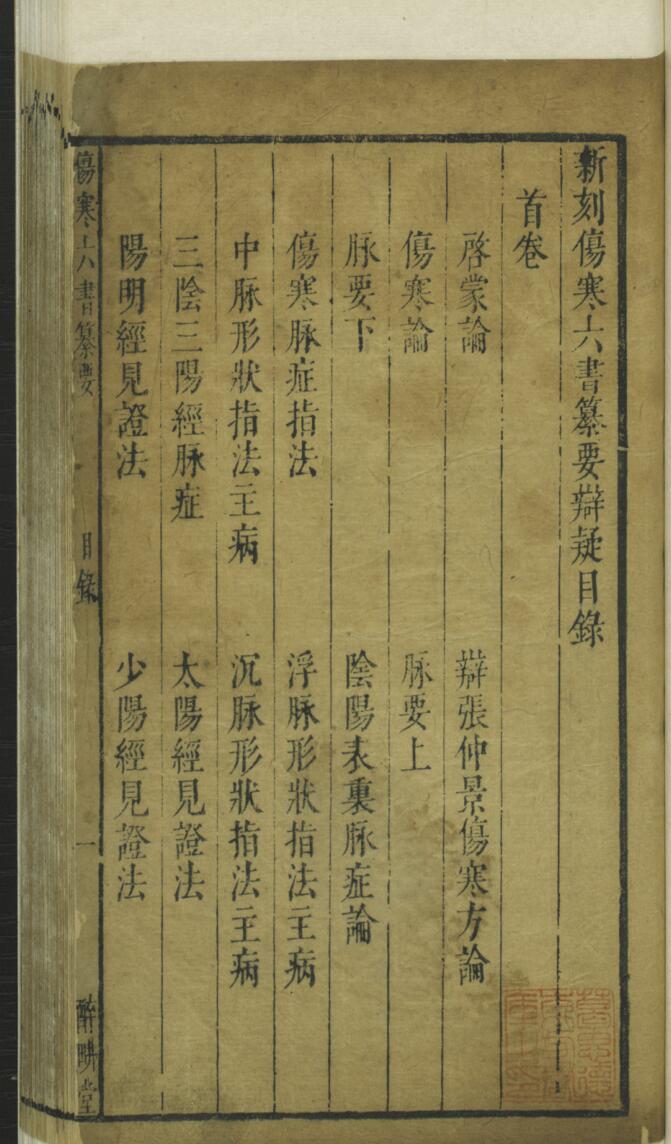 新刻傷寒六書纂要辯疑目錄
首卷
啓蒙論　辯張仲景傷寒方論
傷寒論　脉要上
脉要下　陰陽表裏脉症論
傷寒脉症指法　浮脉形狀指法主病
中脉形狀指法主病　沉脉形狀指法主病
三陰三陽經脉症　太陽經見證法
陽明經見證法　少陽經見證法
傷寒六書纂要　目錄　一　醉畊堂